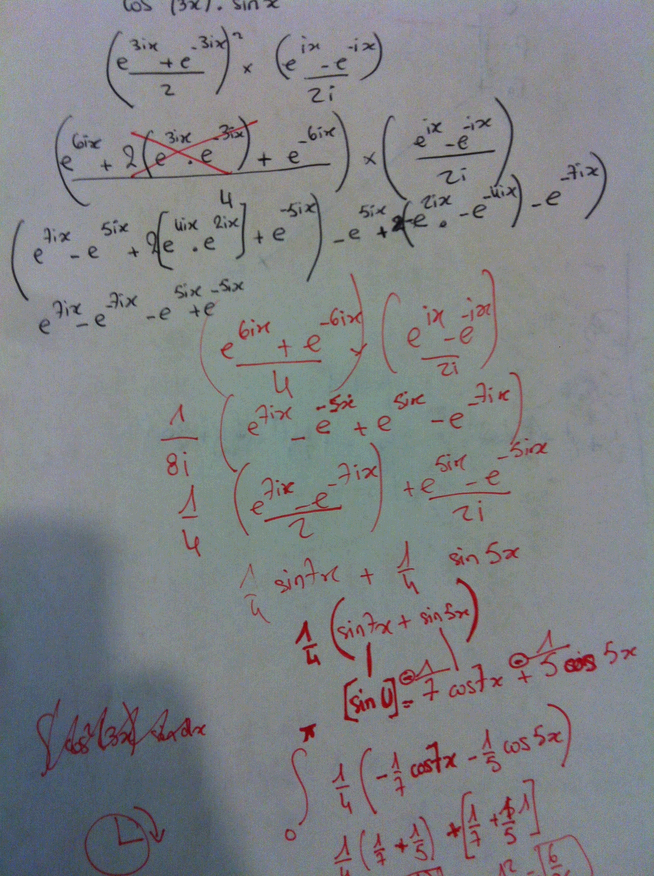 cos (3x) . sin x
((e^{3ix} + e^{-3ix})/2)^2 × ((e^{ix} - e^{-ix})/2i)
((e^{6ix} + 2(e^{3ix} . e^{-3ix}) + e^{-6ix})/4) × ((e^{ix} - e^{-ix})/2i)
(e^{7ix} - e^{5ix} + 2[e^{4ix} . e^{2ix}] + e^{-5ix}) - e^{5ix} + (e^{2ix} . - e^{-4ix}) - e^{-7ix})
e^{7ix} - e^{-7ix} - e^{5ix} + e^{-5ix}
((e^{6ix} + e^{-6ix})/4) × ((e^{ix} - e^{-ix})/2i)
1/8i (e^{7ix} - e^{-5ix} + e^{5ix} - e^{-7ix})
1/4 ((e^{7ix} - e^{-7ix})/2) + (e^{5ix} - e^{-5ix})/2i
1/4 sin7x + 1/4 sin 5x
1/4 (sin7x + sin5x)
[sin U] = - 1/7 cos7x + - 1/5 cos 5x
∫_0^π 1/4 (-1/7 cos7x - 1/5 cos 5x)
1/4 (1/7 + 1/5) + [1/7 + 1/5]